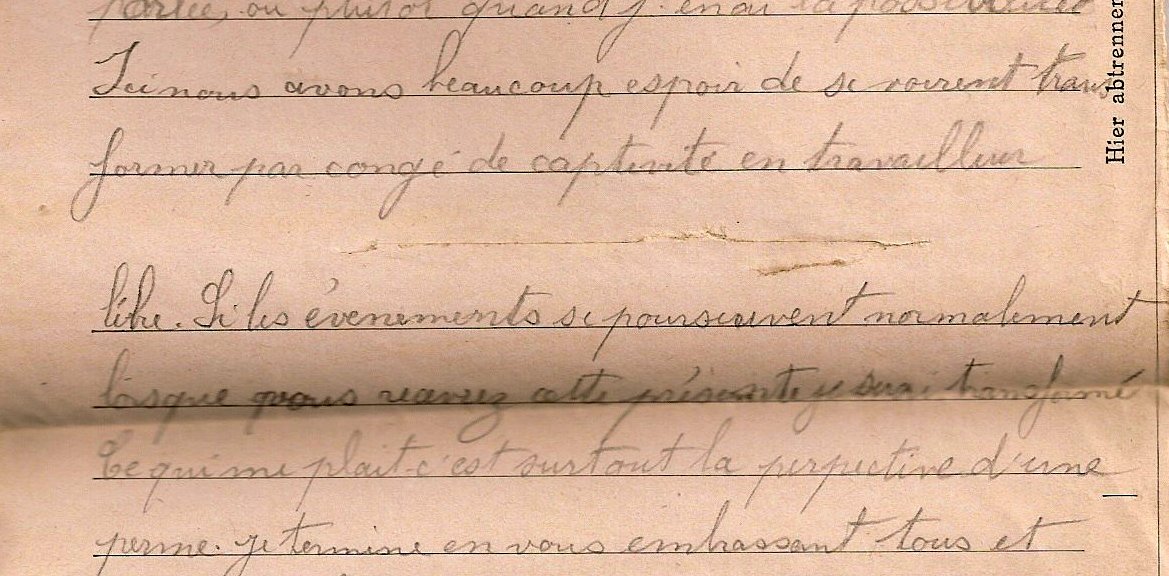 ou plutot quand j'en ai la possibilité
Ici nous avons beaucoup espoir de se voirent trans
former par congé de captivité en travailleur
libre. Si les évenements se poursuivent normalement
lorsque vous recevrez cette présente je serai transformé
Ce qui me plait c'est surtout la perpective d'une
perme. Je termine en vous embrassant tous et
Hier abtrenner